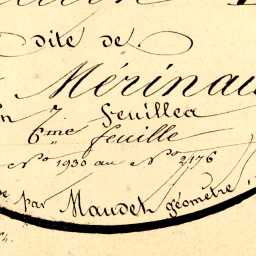 dite de
Mérinau
7 feuilles
6me feuille
No 1930 au No 2176
par Maudet géomètre,